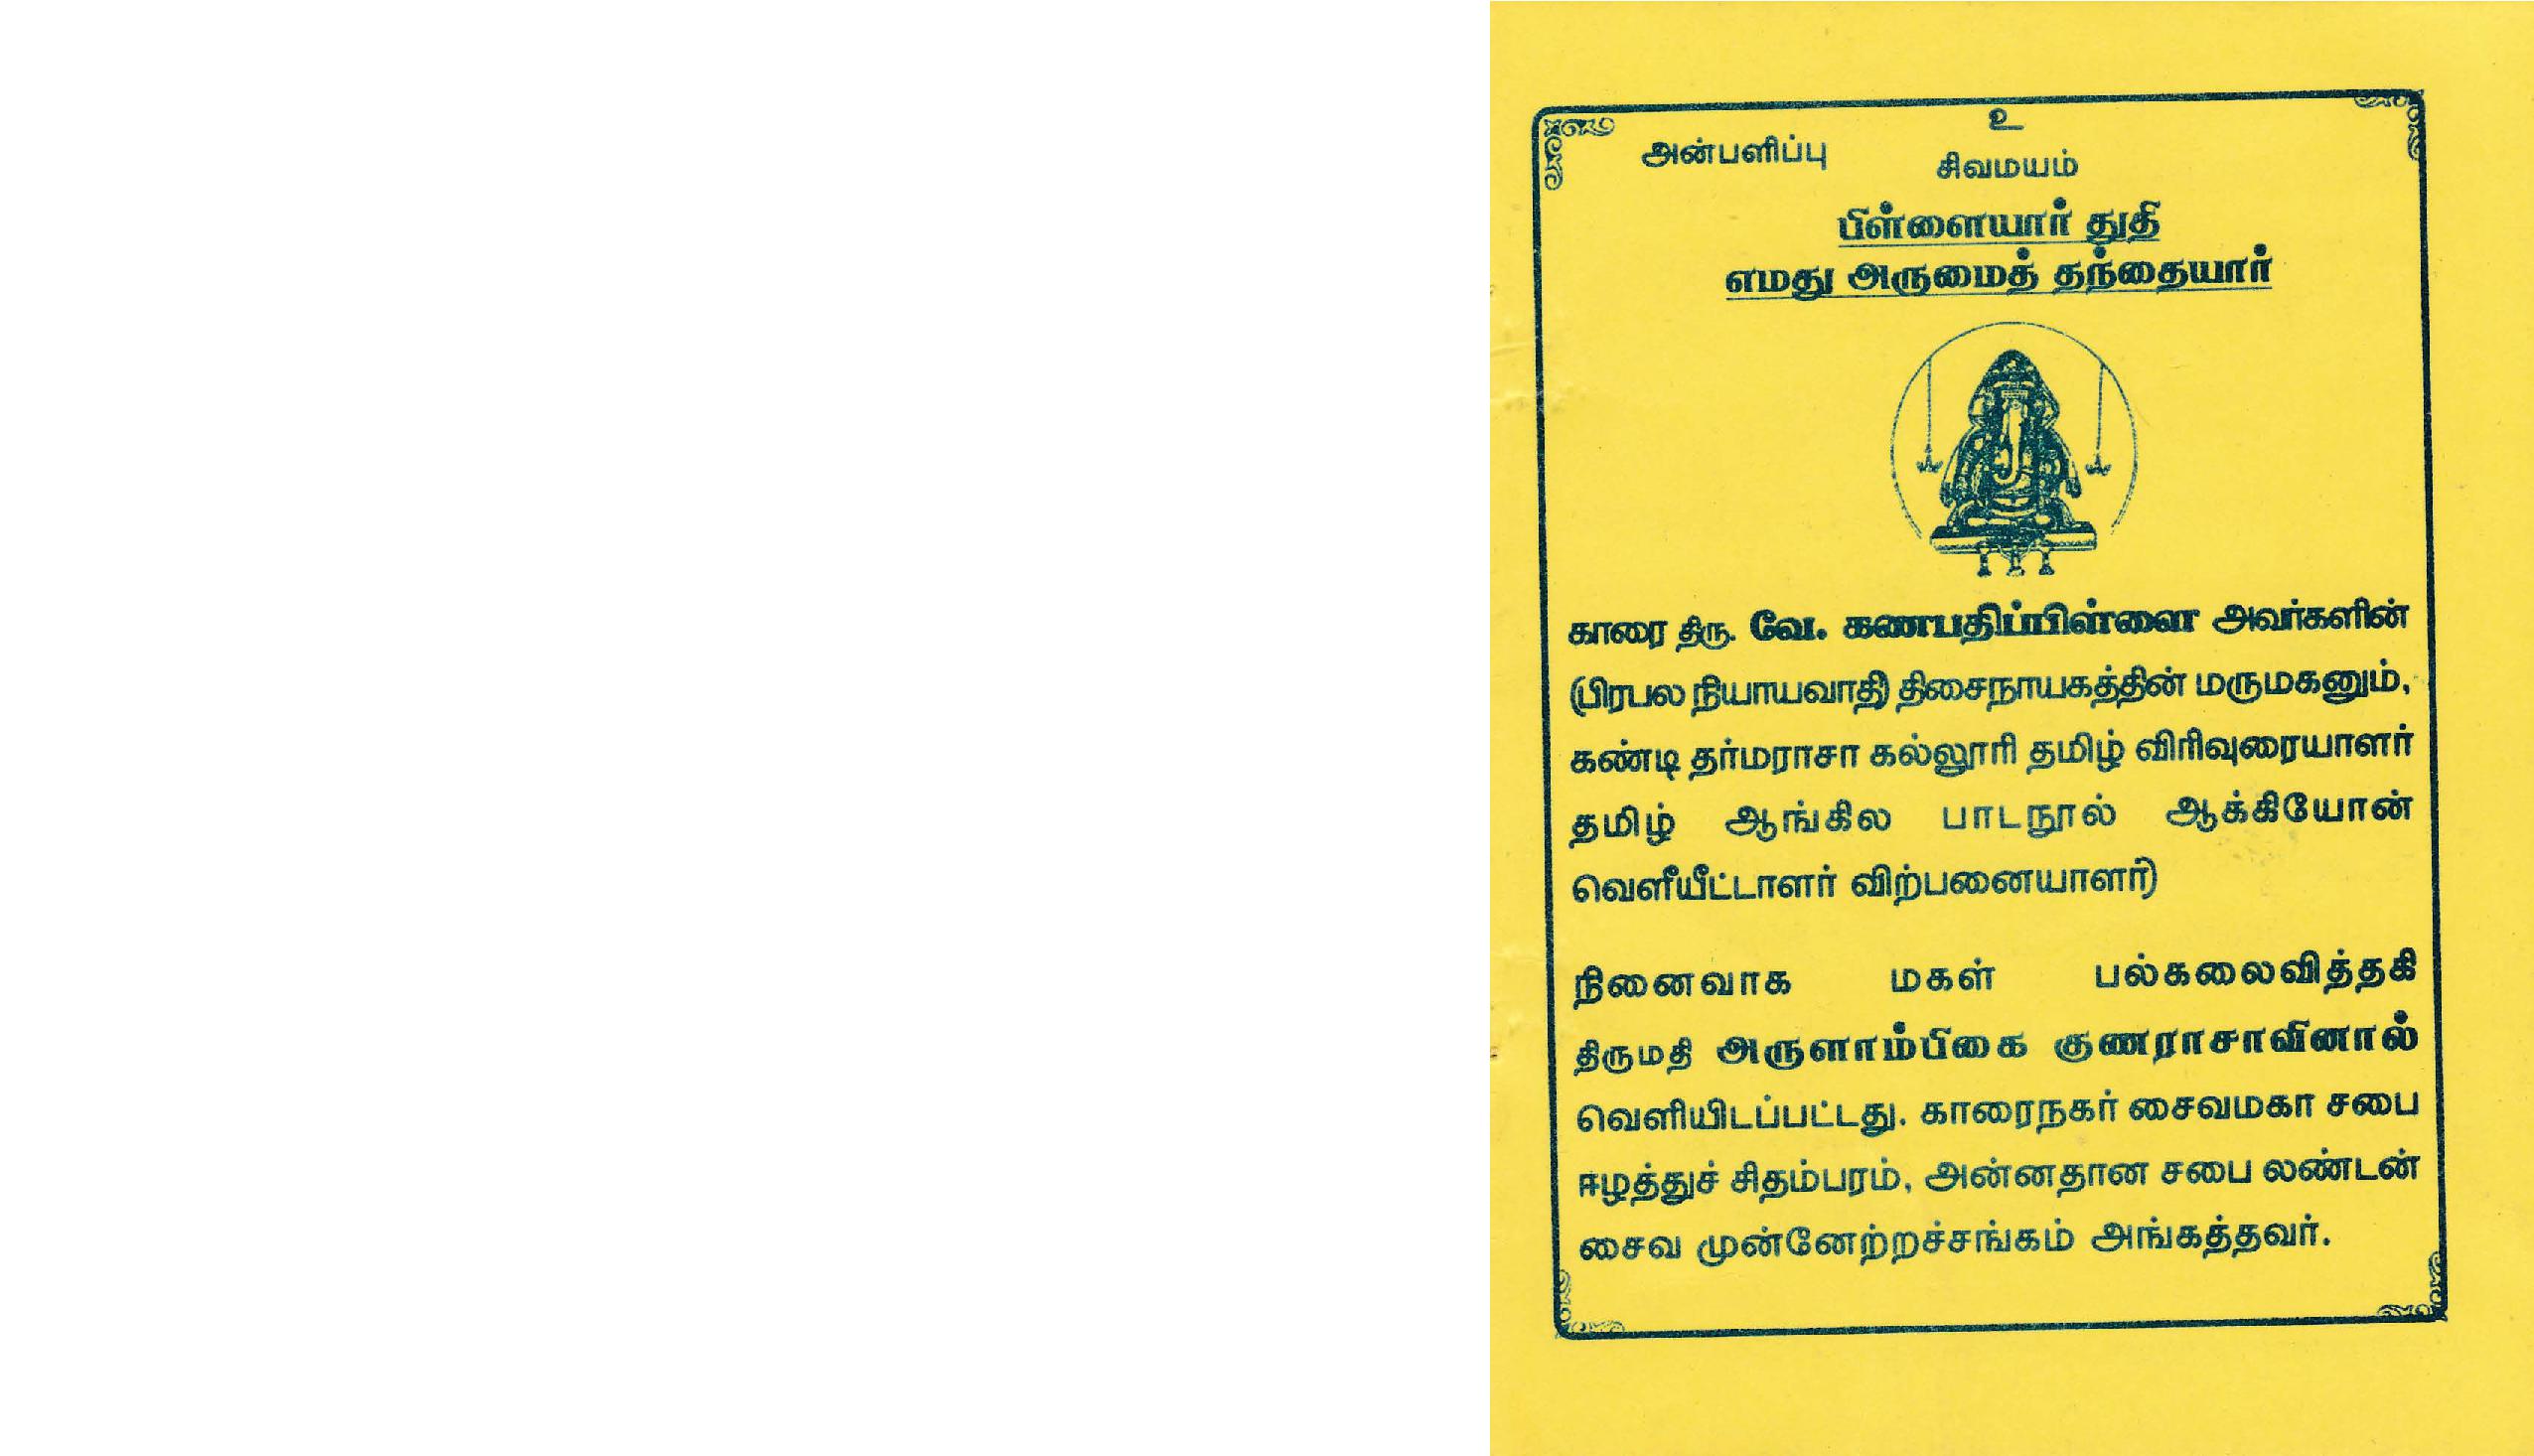 உ
அன்பளிப்பு சிவமயம்
பிள்ளையார் துதி
எமது அருமைத் தந்தையார்
காரை திரு. வே. கணபதிப்பிள்ளை அவர்களின்
(பிரபல நியாயவாதி) திசைநாயகத்தின் மருமகனும்,
கண்டி தர்மராசா கல்லூரி தமிழ் விரிவுரையாளர்
தமிழ் ஆங்கில பாடநூல் ஆக்கியோன்
வெளீயீட்டாளர் விற்பனையாளர்)
நினைவாக மகள் பல்கலைவித்தகி
திருமதி அருளாம்பிகை குணராசாவினால்
வெளியிடப்பட்டது. காரைநகர் சைவமகா சபை
ஈழத்துச் சிதம்பரம், அன்னதான சபை லண்டன்
சைவ முன்னேற்றச்சங்கம் அங்கத்தவர்.